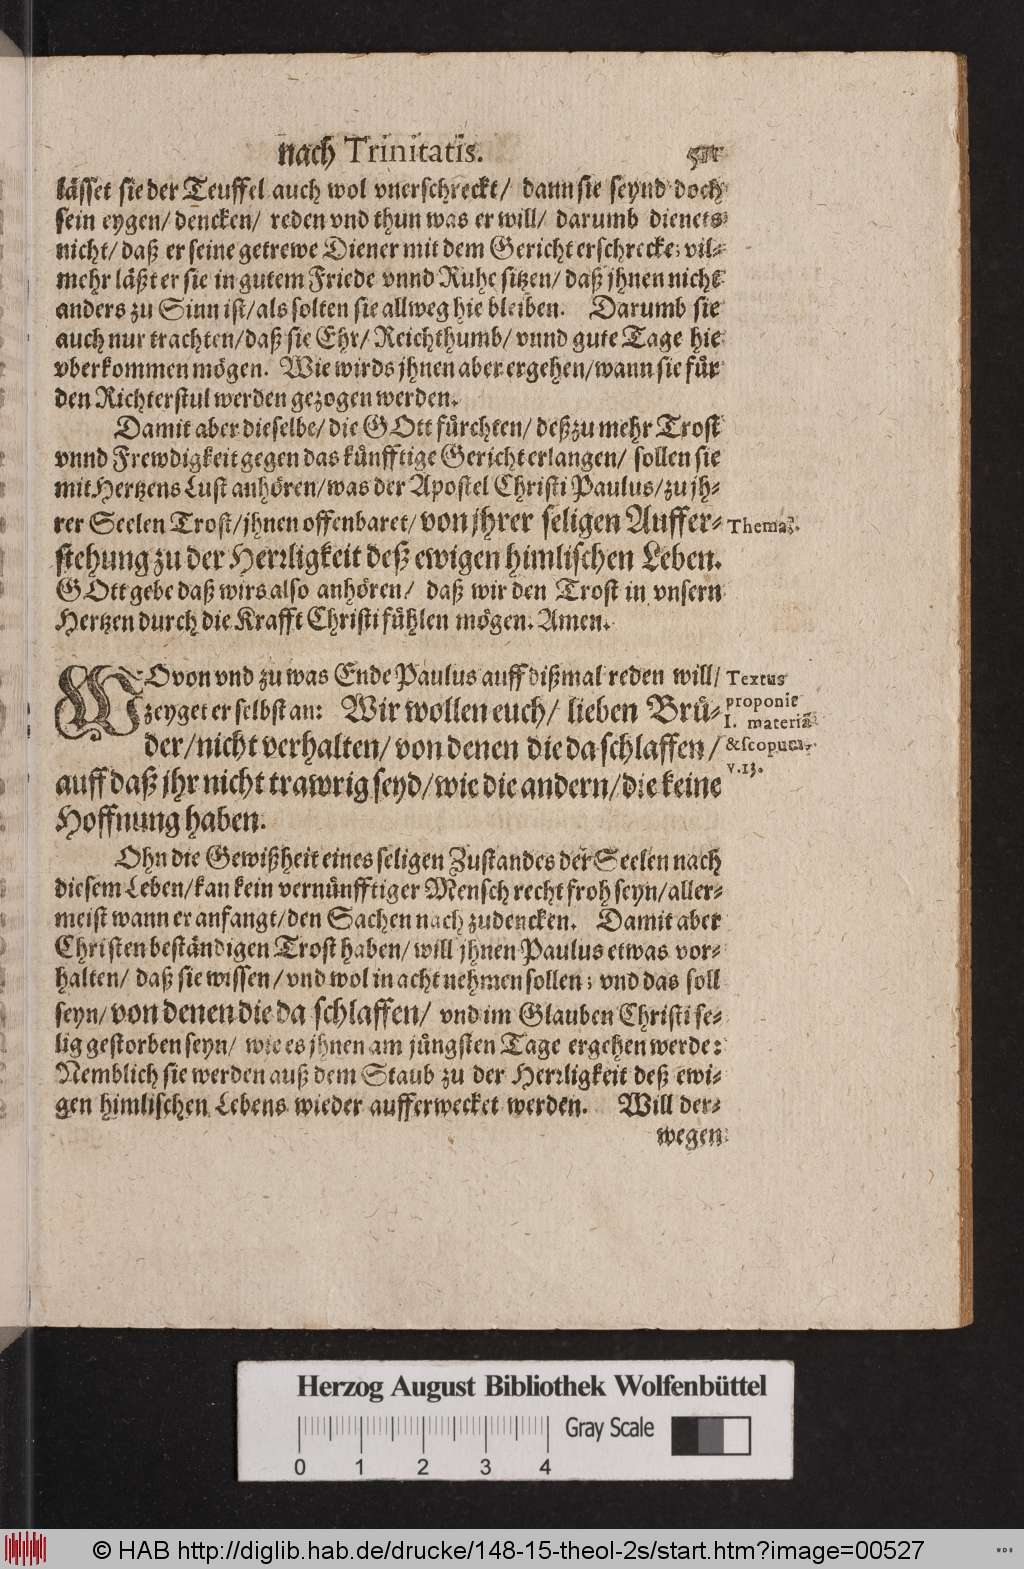 nach Trinitatis.
lässet sie der Teuffel auch wol vnerschreckt/ dann sie seynd doch
sein eygen/ dencken/ reden vnd thun was er will/ darumb dienets
nicht/ daß er seine getrewe Diener mit dem Gericht erschrecke; vil-
mehr läßt er sie in gutem Friede vnnd Ruhe sitzen/ daß jhnen nicht
anders zu Sinn ist/ als solten sie allweg hie bleiben. Darumb sie
auch nur trachten/ daß sie Ehr/ Reichthumb/ vnnd gute Tage hie
vberkommen mögen. Wie wirds jhnen aber ergehen/ wann sie für
den Richterstul werden gezogen werden.
Damit aber dieselbe/ die GOtt fürchten/ deß zu mehr Trost
vnnd Frewdigkeit gegen das künfftige Gericht erlangen/ sollen sie
mit Hertzens Lust anhören/ was der Apostel Christi Paulus/ zu jh-
rer Seelen Trost/ jhnen offenbaret/ von jhrer seligen Auffer-
Thema.
stehung zu der Herrligkeit deß ewigen himlischen Leben.
GOtt gebe daß wirs also anhören/ daß wir den Trost in vnsern
Hertzen durch die Krafft Christi fühlen mögen. Amen.
WOvon vnd zu was Ende Paulus auff dißmal reden will/
zeyget er selbst an: Wir wollen euch/ lieben Brü-
der/ nicht verhalten/ von denen die da schlaffen/
auff daß jhr nicht trawrig seyd/ wie die andern/ die keine
Hoffnung haben.
Textus
proponit
I. materiã
& scopum,
v. 13.
Ohn die Gewißheit eines seligen Zustandes der Seelen nach
diesem Leben/ kan kein vernünfftiger Mensch recht froh seyn/ aller-
meist wann er anfangt/ den Sachen nach zudencken. Damit aber
Christen beständigen Trost haben/ will jhnen Paulus etwas vor-
halten/ daß sie wissen/ vnd wol in acht nehmen sollen; vnd das soll
seyn/ von denen die da schlaffen/ vnd im Glauben Christi se-
lig gestorben seyn/ wie es jhnen am jüngsten Tage ergehen werde:
Nemblich sie werden auß dem Staub zu der Herrligkeit deß ewi-
gen himlischen Lebens wieder aufferwecket werden. Will der-
wegen
Herzog August Bibliothek Wolfenbüttel
Gray Scale
0 1 2 3 4
© HAB http://diglib.hab.de/drucke/148-15-theol-2s/start.htm?image=00527